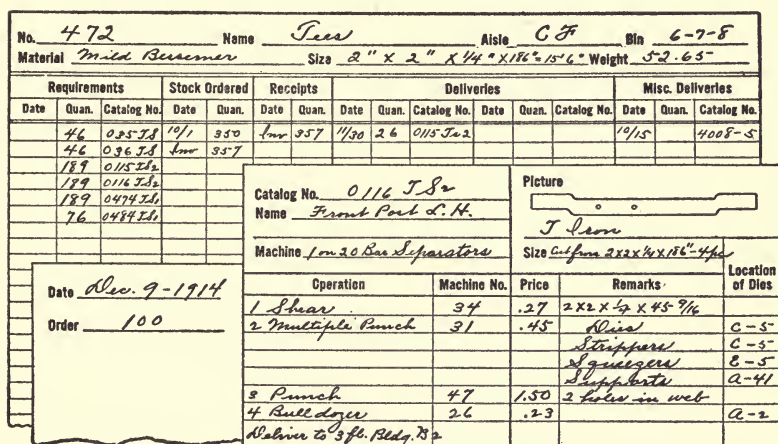 No. 472 Name Tees Aisle CF Bin 6-7-8
Material Mild Bessemer Size 2" X 2" X 1/4" X 186" = 15'6" Weight 52.65
Requirements Stock Ordered Receipts Deliveries Misc. Deliveries
Date Quan. Catalog No. Date Quan. Date Quan. Date Quan. Catalog No. Date Quan. Catalog No. Date Quan. Catalog No.
46 035 TS 10/1 350 Inv 357 11/30 26 0115 Ts2 10/15 4008-5
46 036 TS Inv 357
189 0115 TS2
189 0116 TS2
189 0474 TS1
76 0484 TS1
Date Dec. 9-1914
Order 100
Catalog No. 0116 TS2
Name Front Post L.H.
Machine 1 on 20 Bar Separators
Picture
T Iron
Size Cut from 2x2x1/4x186"-4pc
Operation Machine No. Price Remarks Location of Dies
1 Shear 34 .27 2x2x1/4 x 45-9/16
2 Multiple Punch 31 .45 Dies C-5
Strippers C-5
Squeegers E-5
Supports A-41
3 Punch 47 1.50 2 holes in web
4 Bulldozer 26 .23 A-2
Deliver to 3 fl. Bldg. B2